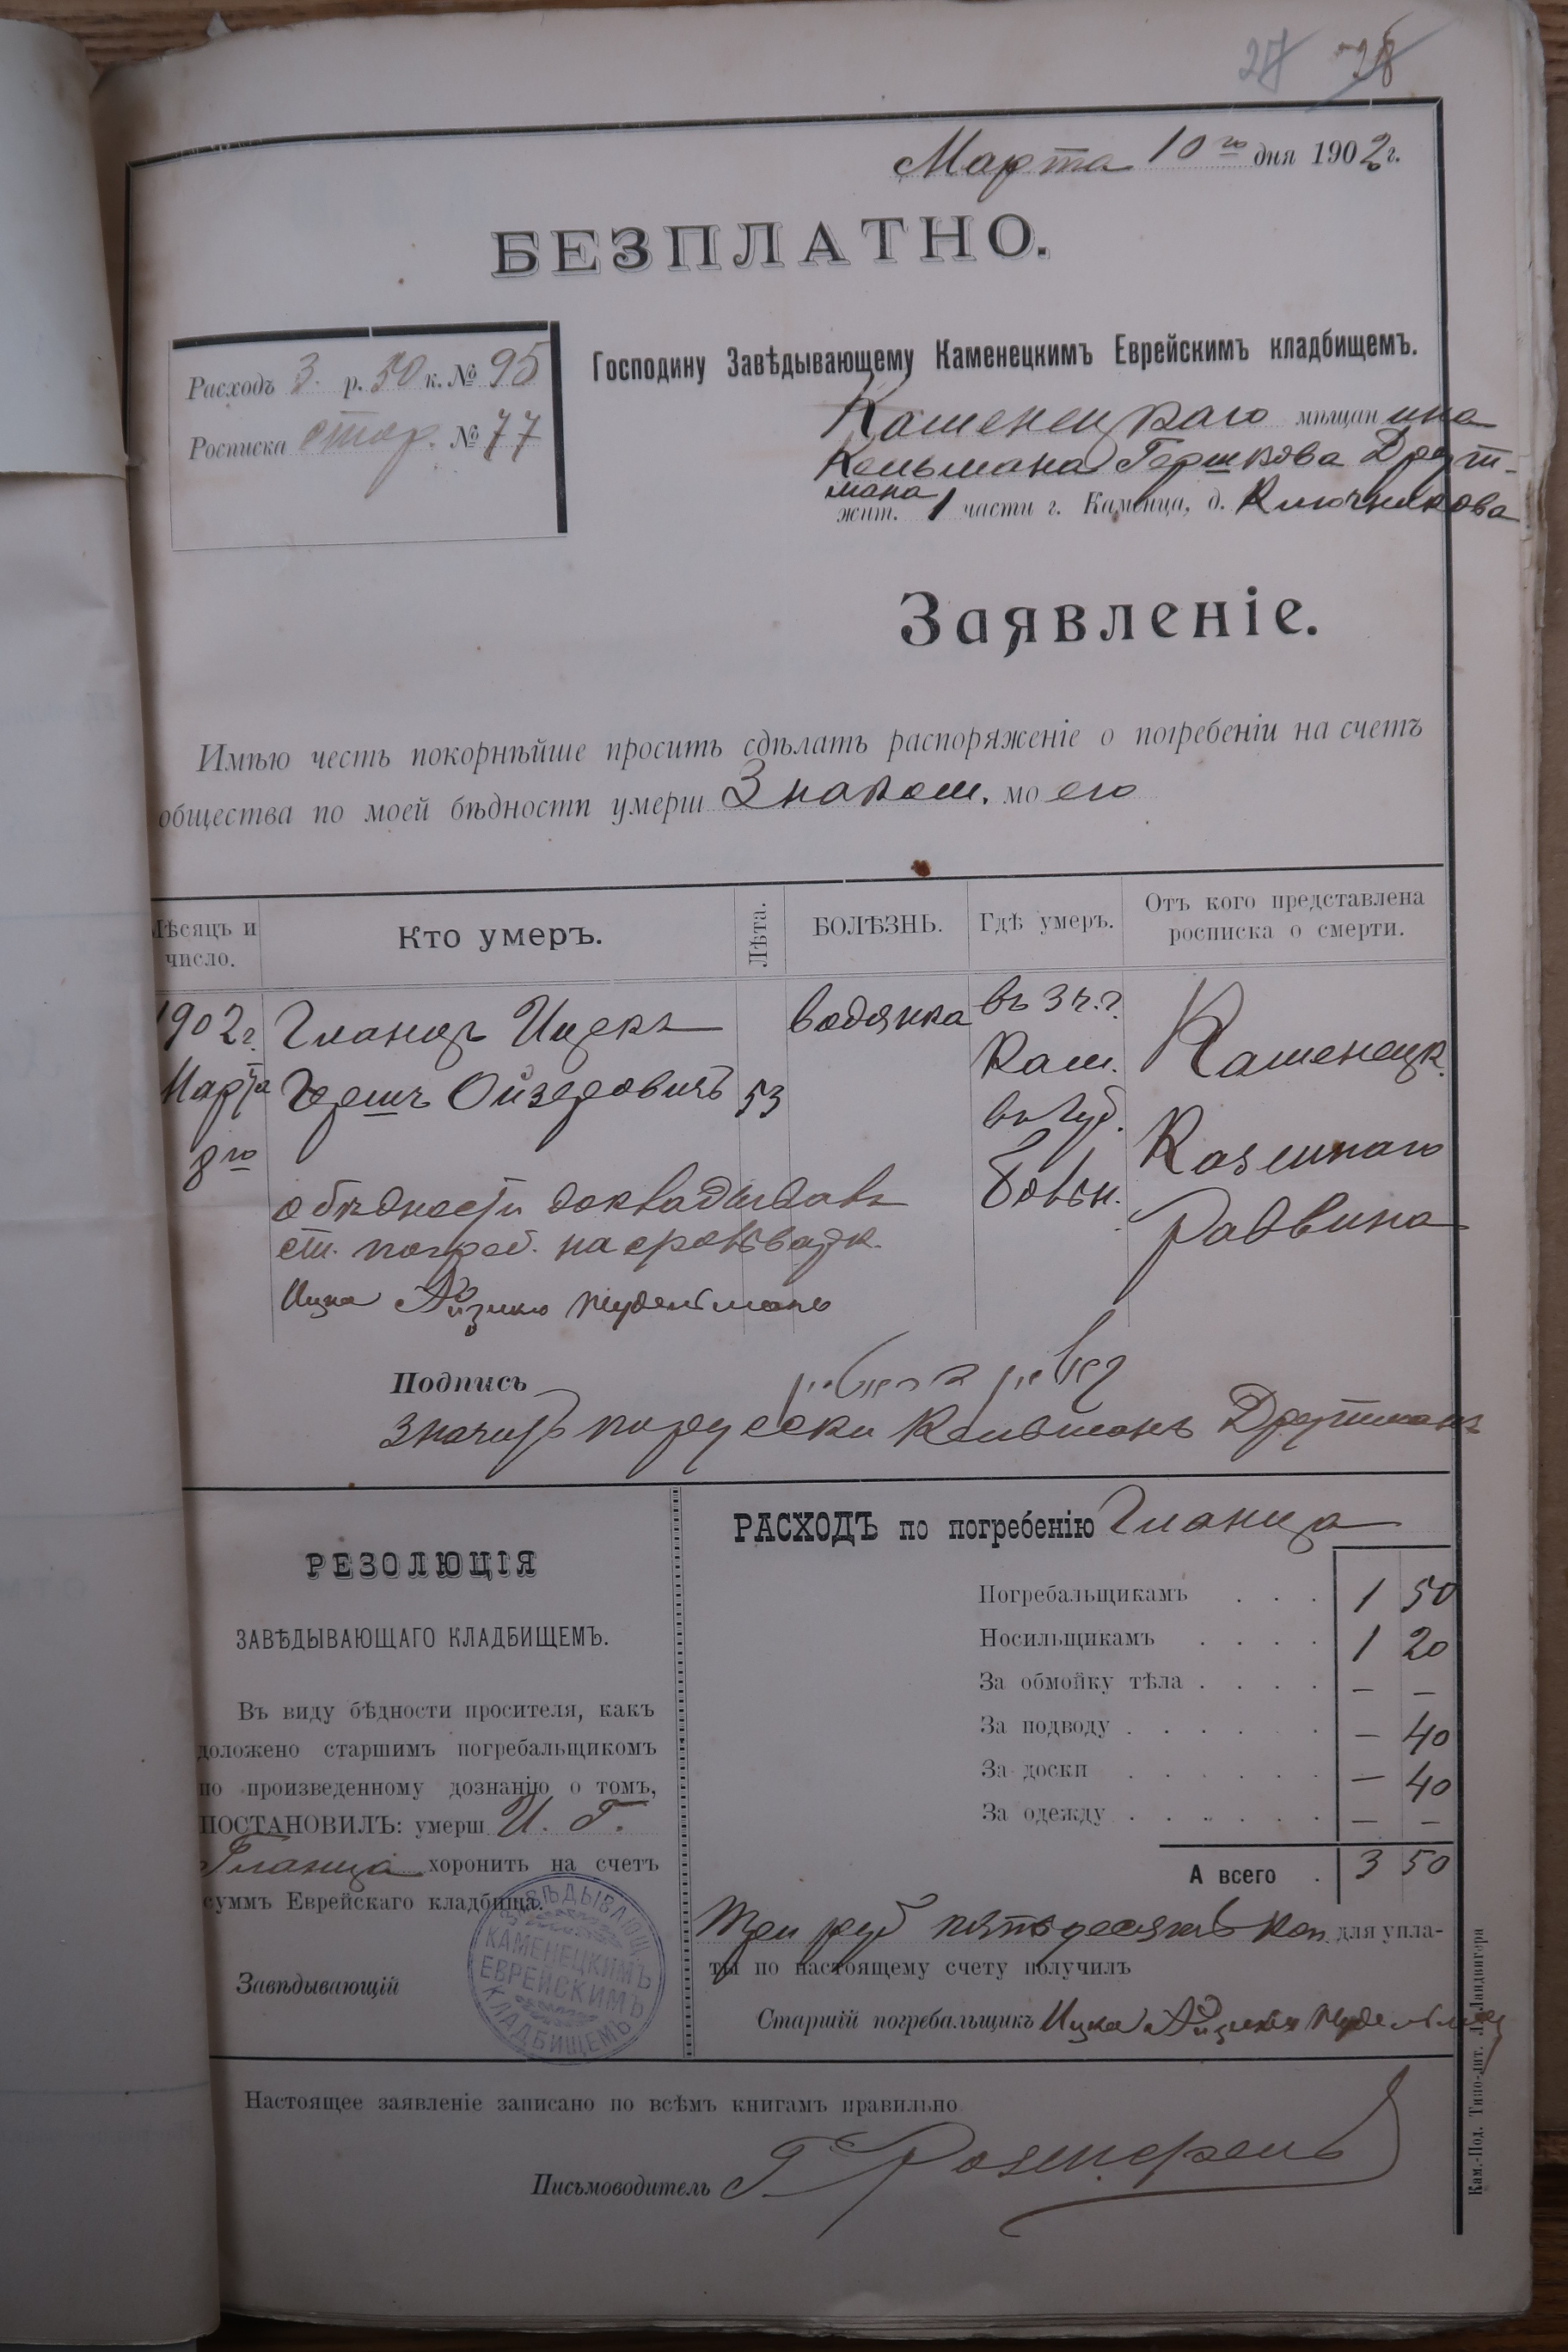 27 28
Марта 10го дня 1902 г.
БЕЗПЛАТНО.
Расходъ 3. р. 50 к. № 95
Росписка стор. № 77
Господину Завѣдывающему Каменецкимъ Еврейскимъ кладбищемъ.
Каменецкаго мѣщанина
Кельмана Гершкова Друт-
мана
жит. 1 части г. Каменца, д. Ключникова
Заявленіе.
Имѣю честь покорнѣйше просить сдѣлать распоряженіе о погребеніи на счетъ
общества по моей бѣдности умерш Знаком. моего
Мѣсяцъ и число.
Кто умеръ.
Лѣта.
БОЛѢЗНЬ.
Гдѣ умеръ.
Отъ кого представлена росписка о смерти.
1902 г.
Марта
8го
Гланцъ Ицекъ
Гершъ Ойзеровичъ
53
водянка
въ 3 ч. г.
Кам.
въ губ.
больн.
Каменецк.
Казеннаго
Раввина
о бѣдности докладывалъ
ст. погреб.
Ицка Айзикъ Нудельманъ
Подпись
значитъ по русски Кельманъ Друтманъ
РЕЗОЛЮЦІЯ
ЗАВѢДЫВАЮЩАГО КЛАДБИЩЕМЪ.
Въ виду бѣдности просителя, какъ
доложено старшимъ погребальщикомъ
по произведенному дознанію о томъ,
ПОСТАНОВИЛЪ: умерш И. Г.
Гланца хоронить на счетъ
суммъ Еврейскаго кладбища.
Завѣдывающій
ЗАВѢДЫВАЮЩ.
КАМЕНЕЦКИМЪ
ЕВРЕЙСКИМЪ
КЛАДБИЩЕМЪ
РАСХОДЪ по погребенію Гланца
Погребальщикамъ . . . 1 50
Носильщикамъ . . . . 1 20
За обмойку тѣла . . . . — —
За подводу . . . . . — 40
За доски . . . . . . — 40
За одежду . . . . . . — —
А всего . 3 50
Три руб пятьдесятъ коп для упла-
ты по настоящему счету получилъ
Старшій погребальщикъ Ицка Айзикъ Нудельман
Настоящее заявленіе записано по всѣмъ книгамъ правильно
Письмоводитель Г. Розенфель
Кам.-Под. Типо-лит. Л. Ландвигера